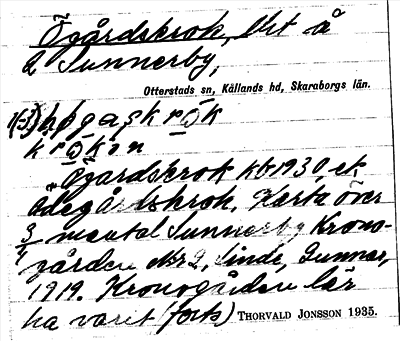 Ögårdskrok, lht å
2 Sunnerby,
Otterstads sn, Kållands hd, Skaraborgs län.
krǫkən
Ögårdskrok kb 1930 et.
Ödegårdskrok. Karta över
3/4 mental Sunnerby Krono-
gården Nr 2, Linde, Gunnar,
1919. Kronogården lär
ha varit (forts)
THORVALD JONSSON 1935.